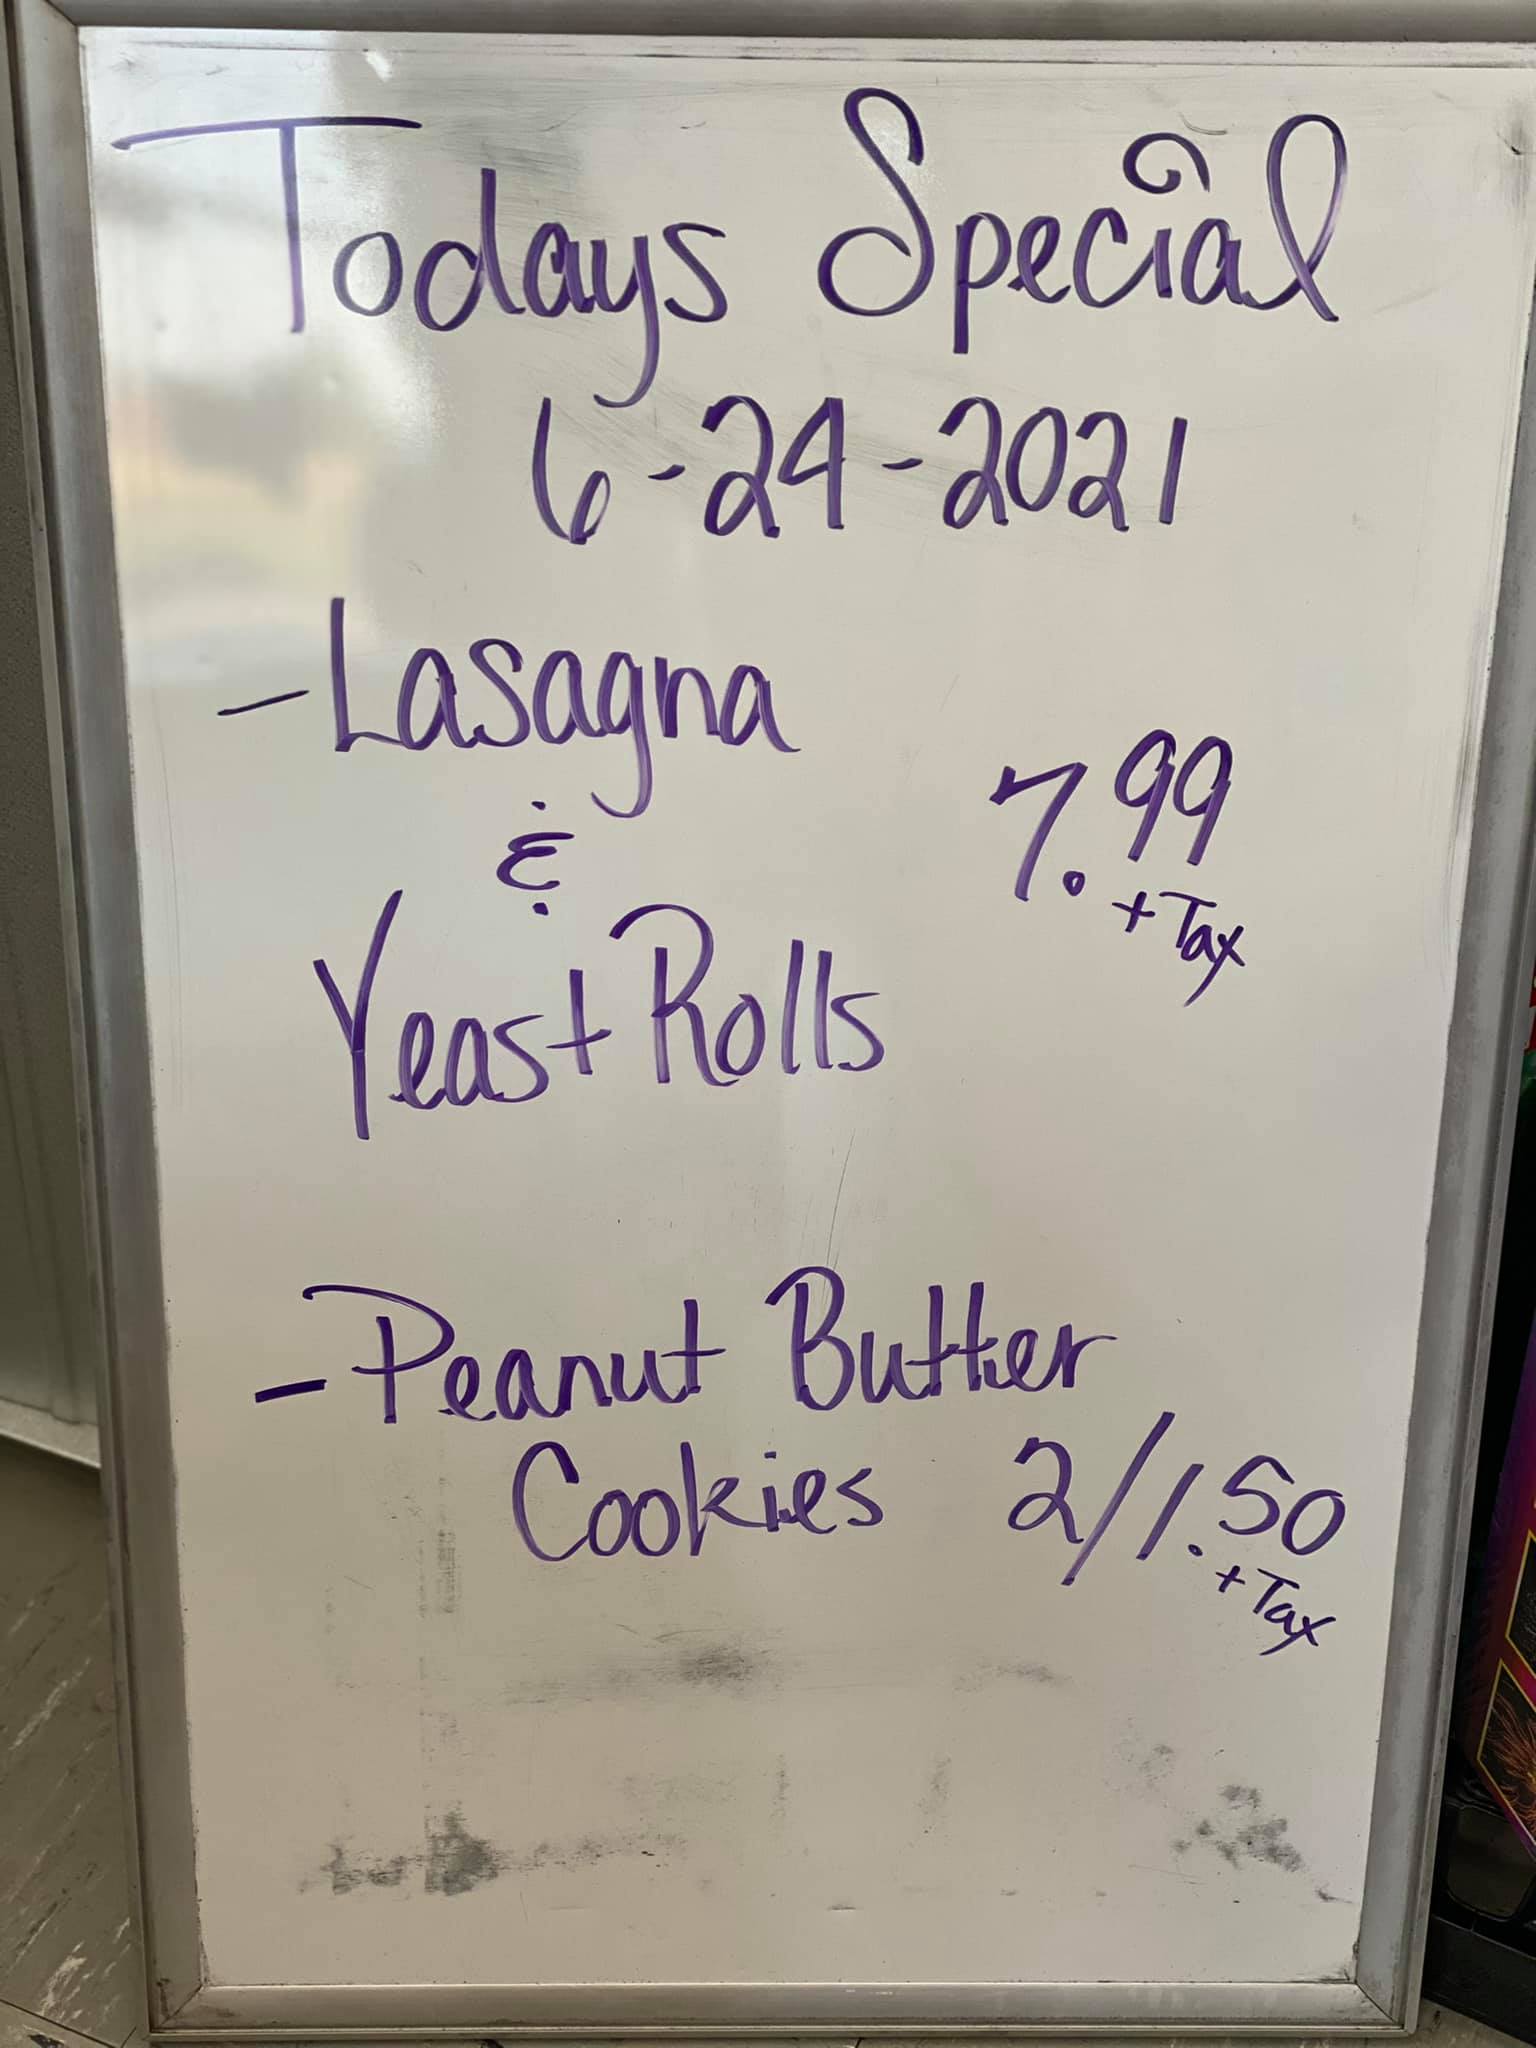 Todays Special
6-24-2021
-Lasagna
&
Yeast Rolls
7.99
+Tax
-Peanut Butter
Cookies 2/1.50
+Tax